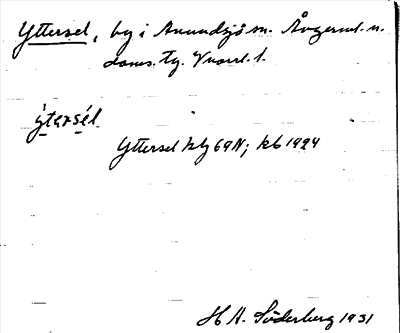 Yttersel, by i Anundsjö sn. Ångerml. n.
doms. tg. Vnorrl. l.
ýtərsél
Yttersel kbg 69 N; kb 1924
H A. Söderberg 1931